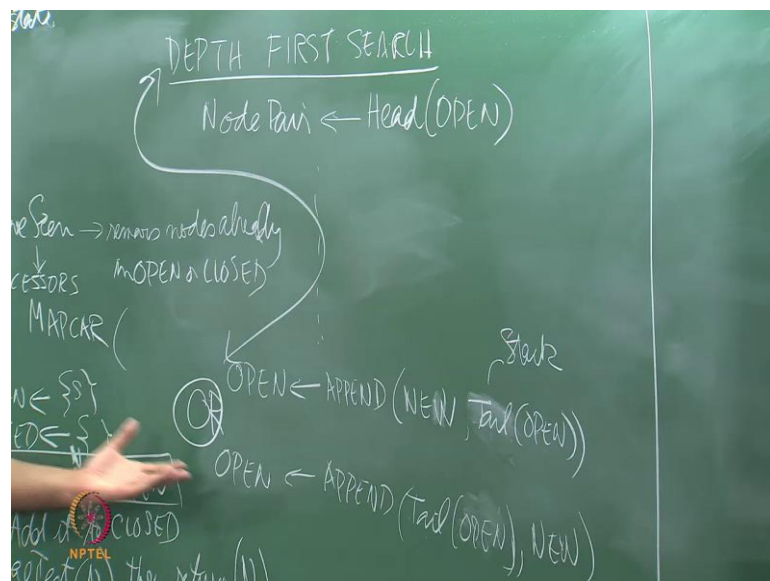 State
DEPTH FIRST SEARCH
NodePair ← Head(OPEN)
veSeen → removes nodes already
in OPEN or CLOSED
CESSORS
MAPCAR (
Stack
OPEN ← APPEND (NEW, Tail(OPEN))
N ← {S}
OR
SED ← { }
OPEN ← APPEND (Tail(OPEN), NEW)
Add it to CLOSED
NPTEL
(N) then return (N)